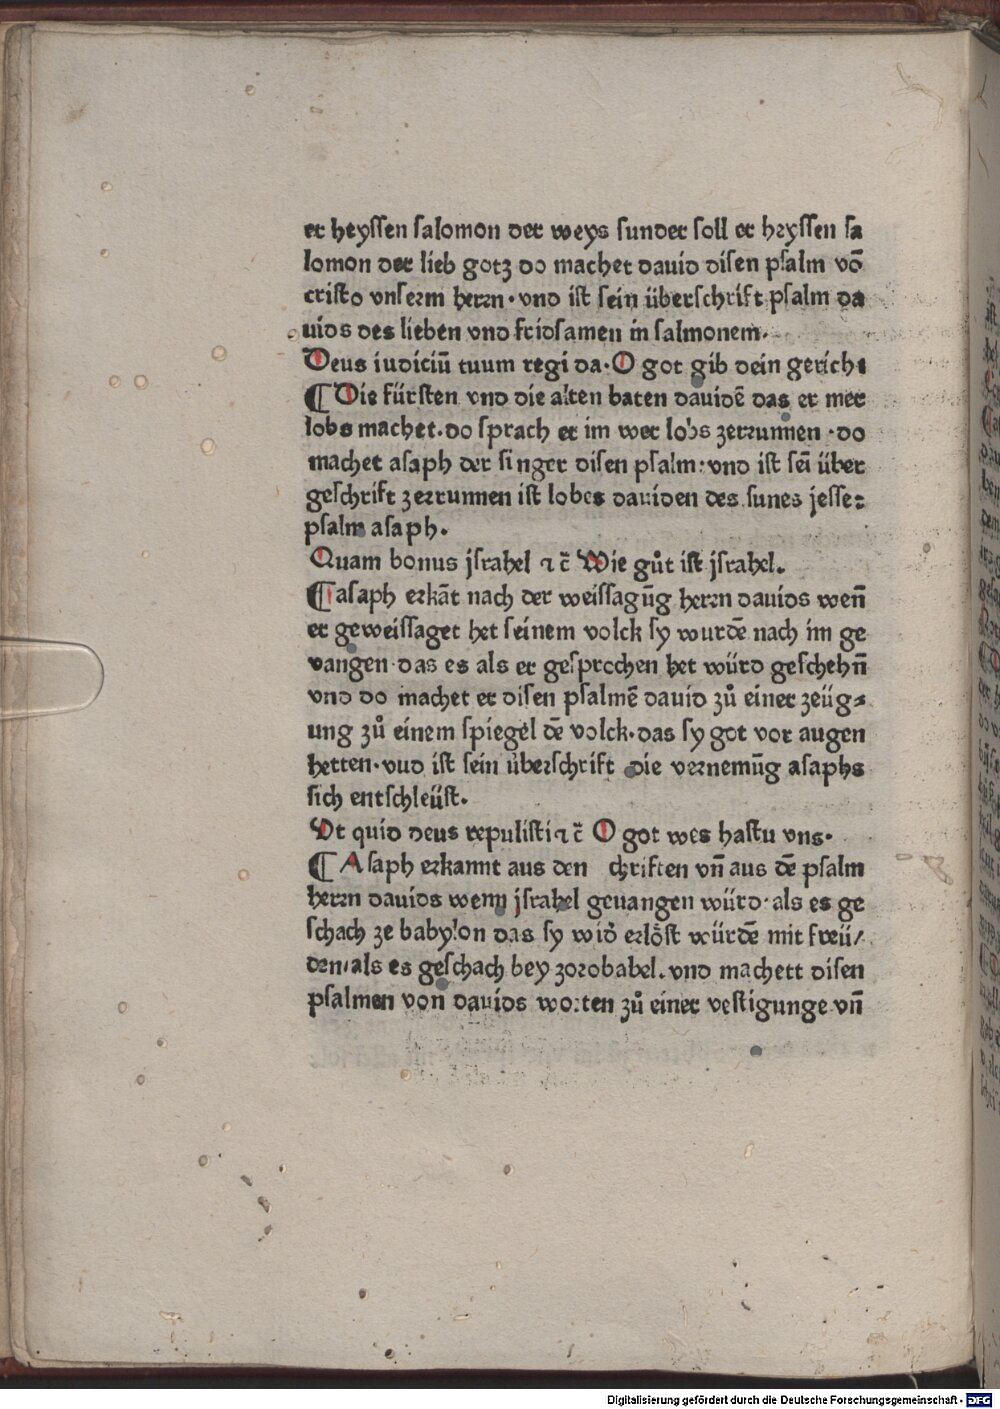 er heyſſen ſalomon der weys ſunder ſoll er heyſſen ſa
lomon der lieb gotz do machet dauid diſen pſalm vō
criſto vnſerm herrn · vnd iſt ſein überſchrift pſalm da
uids des lieben vnd fridſamen in ſalmonem ·
Deus iudiciū tuum regi da · O got gib dein gericht
¶ Die fürſten vnd die alten baten dauidē das er mer
lobs machet · do ſprach er im wer lobs zerrunnen · do
machet aſaph der ſinger diſen pſalm: vnd iſt ſeī über
geſchrift zerrunnen iſt lobes dauiden des ſunes jeſſe:
pſalm aſaph.
Quam bonus jſrahel ⁊ c̄ Wie gůt iſt jſrahel.
¶ aſaph erkāt nach der weiſſagūg herrn dauids weñ
er geweiſſaget het ſeinem volck ſy wurdē nach im ge
vangen · das es als er geſprochen het würd geſchehñ
vnd do machet er diſen pſalmē dauid zů einer zeüg⸗
ung zů einem ſpiegel dē volck · das ſy got vor augen
hetten · vud iſt ſein überſchrift die vernemūg aſaphs
ſich entſchleüſt.
Vt quid deus repuliſti ⁊ c̄ O got wes haſtu vns ·
¶ Aſaph erkannt aus den chriften vñ aus dē pſalm
herrn dauids wenn jſrahel geuangen würd · als es ge
ſchach ze babylon das ſy wid̄ erlöſt würdē mit freü/
den/ als es geſchach bey zorobabel. vnd machett diſen
pſalmen von dauids worten zů einer veſtigunge vñ
Digitalisierung gefördert durch die Deutsche Forschungsgemeinschaft - DFG